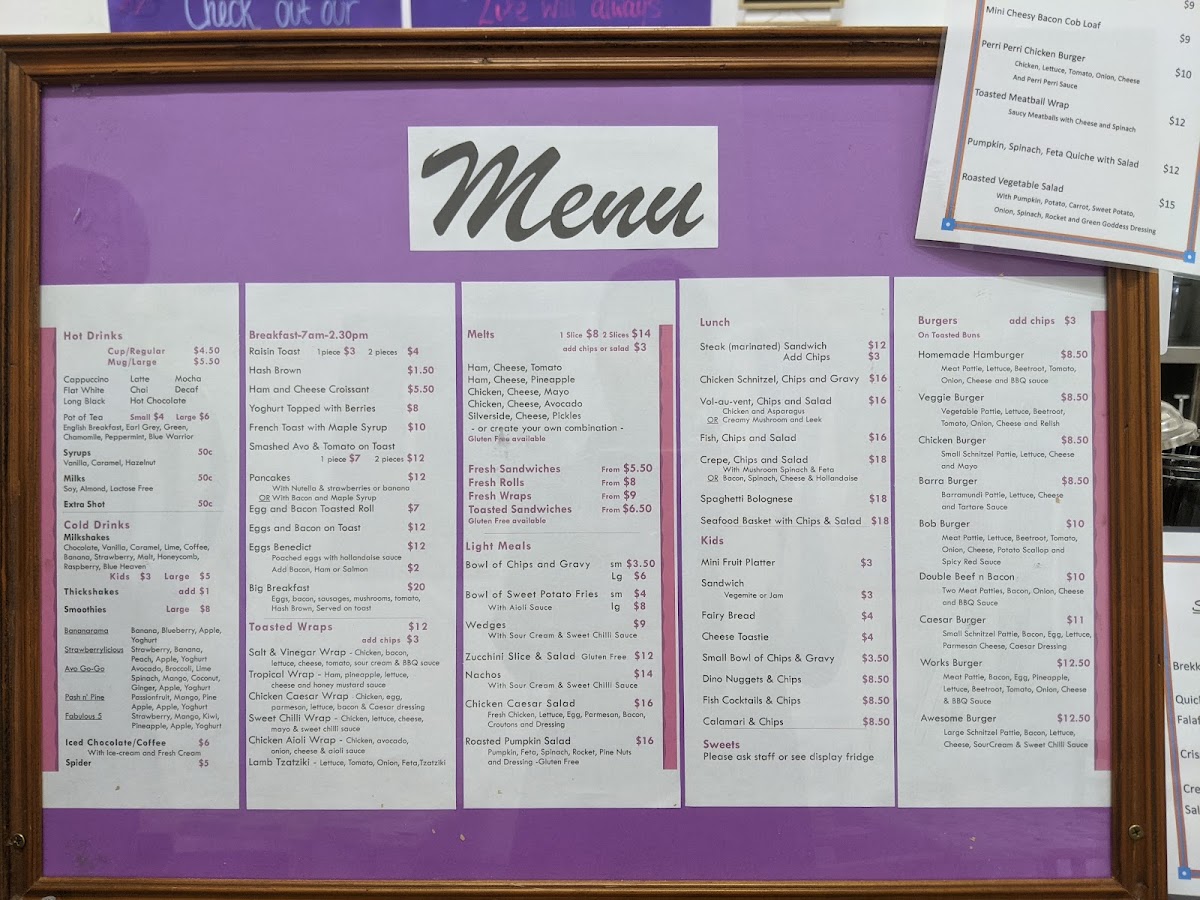 Check out our
Live will always
$9
Mini Cheesy Bacon Cob Loaf
$9
Perri Perri Chicken Burger $10
Chicken, Lettuce, Tomato, Onion, Cheese
And Perri Perri Sauce
Toasted Meatball Wrap $12
Saucy Meatballs with Cheese and Spinach
Pumpkin, Spinach, Feta Quiche with Salad $12
Roasted Vegetable Salad $15
With Pumpkin, Potato, Carrot, Sweet Potato,
Onion, Spinach, Rocket and Green Goddess Dressing
Menu
Hot Drinks
Cup/Regular $4.50
Mug/Large $5.50
Cappuccino Latte Mocha
Flat White Chai Decaf
Long Black Hot Chocolate
Pot of Tea Small $4 Large $6
English Breakfast, Earl Grey, Green,
Chamomile, Peppermint, Blue Warrior
Syrups 50c
Vanilla, Caramel, Hazelnut
Milks 50c
Soy, Almond, Lactose Free
Extra Shot 50c
Cold Drinks
Milkshakes
Chocolate, Vanilla, Caramel, Lime, Coffee,
Banana, Strawberry, Malt, Honeycomb,
Raspberry, Blue Heaven
Kids $3 Large $5
Thickshakes add $1
Smoothies Large $8
Bananarama Banana, Blueberry, Apple,
Yoghurt
Strawberrylicious Strawberry, Banana,
Peach, Apple, Yoghurt
Avo Go-Go Avocado, Broccoli, Lime
Spinach, Mango, Coconut,
Ginger, Apple, Yoghurt
Pash n' Pine Passionfruit, Mango, Pine
Apple, Apple, Yoghurt
Fabulous 5 Strawberry, Mango, Kiwi,
Pineapple, Apple, Yoghurt
Iced Chocolate/Coffee $6
With Ice-cream and Fresh Cream
Spider $5
Breakfast-7am-2.30pm
Raisin Toast 1piece $3 2 pieces $4
Hash Brown $1.50
Ham and Cheese Croissant $5.50
Yoghurt Topped with Berries $8
French Toast with Maple Syrup $10
Smashed Avo & Tomato on Toast
1 piece $7 2 pieces $12
Pancakes $12
With Nutella & strawberries or banana
OR With Bacon and Maple Syrup
Egg and Bacon Toasted Roll $7
Eggs and Bacon on Toast $12
Eggs Benedict $12
Poached eggs with hollandaise sauce
Add Bacon, Ham or Salmon $2
Big Breakfast $20
Eggs, bacon, sausages, mushrooms, tomato,
Hash Brown, Served on toast
Toasted Wraps $12
add chips $3
Salt & Vinegar Wrap - Chicken, bacon,
lettuce, cheese, tomato, sour cream & BBQ sauce
Tropical Wrap - Ham, pineapple, lettuce,
cheese and honey mustard sauce
Chicken Caesar Wrap - Chicken, egg,
parmesan, lettuce, bacon & Caesar dressing
Sweet Chilli Wrap - Chicken, lettuce, cheese,
mayo & sweet chilli sauce
Chicken Aioli Wrap - Chicken, avocado,
onion, cheese & aioli sauce
Lamb Tzatziki - Lettuce, Tomato, Onion, Feta,Tzatziki
Melts 1 Slice $8 2 Slices $14
add chips or salad $3
Ham, Cheese, Tomato
Ham, Cheese, Pineapple
Chicken, Cheese, Mayo
Chicken, Cheese, Avocado
Silverside, Cheese, Pickles
- or create your own combination -
Gluten Free available
Fresh Sandwiches From $5.50
Fresh Rolls From $8
Fresh Wraps From $9
Toasted Sandwiches From $6.50
Gluten Free available
Light Meals
Bowl of Chips and Gravy sm $3.50
Lg $6
Bowl of Sweet Potato Fries sm $4
With Aioli Sauce lg $8
Wedges $9
With Sour Cream & Sweet Chilli Sauce
Zucchini Slice & Salad Gluten Free $12
Nachos $14
With Sour Cream & Sweet Chilli Sauce
Chicken Caesar Salad $16
Fresh Chicken, Lettuce, Egg, Parmesan, Bacon,
Croutons and Dressing
Roasted Pumpkin Salad $16
Pumpkin, Feta, Spinach, Rocket, Pine Nuts
and Dressing -Gluten Free
Lunch
Steak (marinated) Sandwich $12
Add Chips $3
Chicken Schnitzel, Chips and Gravy $16
Vol-au-vent, Chips and Salad $16
Chicken and Asparagus
OR Creamy Mushroom and Leek
Fish, Chips and Salad $16
Crepe, Chips and Salad $18
With Mushroom Spinach & Feta
OR Bacon, Spinach, Cheese & Hollandaise
Spaghetti Bolognese $18
Seafood Basket with Chips & Salad $18
Kids
Mini Fruit Platter $3
Sandwich
Vegemite or Jam $3
Fairy Bread $4
Cheese Toastie $4
Small Bowl of Chips & Gravy $3.50
Dino Nuggets & Chips $8.50
Fish Cocktails & Chips $8.50
Calamari & Chips $8.50
Sweets
Please ask staff or see display fridge
Burgers add chips $3
On Toasted Buns
Homemade Hamburger $8.50
Meat Pattie, Lettuce, Beetroot, Tomato,
Onion, Cheese and BBQ sauce
Veggie Burger $8.50
Vegetable Pattie, Lettuce, Beetroot,
Tomato, Onion, Cheese and Relish
Chicken Burger $8.50
Small Schnitzel Pattie, Lettuce, Cheese
and Mayo
Barra Burger $8.50
Barramundi Pattie, Lettuce, Cheese
and Tartare Sauce
Bob Burger $10
Meat Pattie, Lettuce, Beetroot, Tomato,
Onion, Cheese, Potato Scallop and
Spicy Red Sauce
Double Beef n Bacon $10
Two Meat Patties, Bacon, Onion, Cheese
and BBQ Sauce
Caesar Burger $11
Small Schnitzel Pattie, Bacon, Egg, Lettuce,
Parmesan Cheese, Caesar Dressing
Works Burger $12.50
Meat Pattie, Bacon, Egg, Pineapple,
Lettuce, Beetroot, Tomato, Onion, Cheese
& BBQ Sauce
Awesome Burger $12.50
Large Schnitzel Pattie, Bacon, Lettuce,
Cheese, SourCream & Sweet Chilli Sauce
Brekk
Quic
Falaf
Cris
Cre
Sal